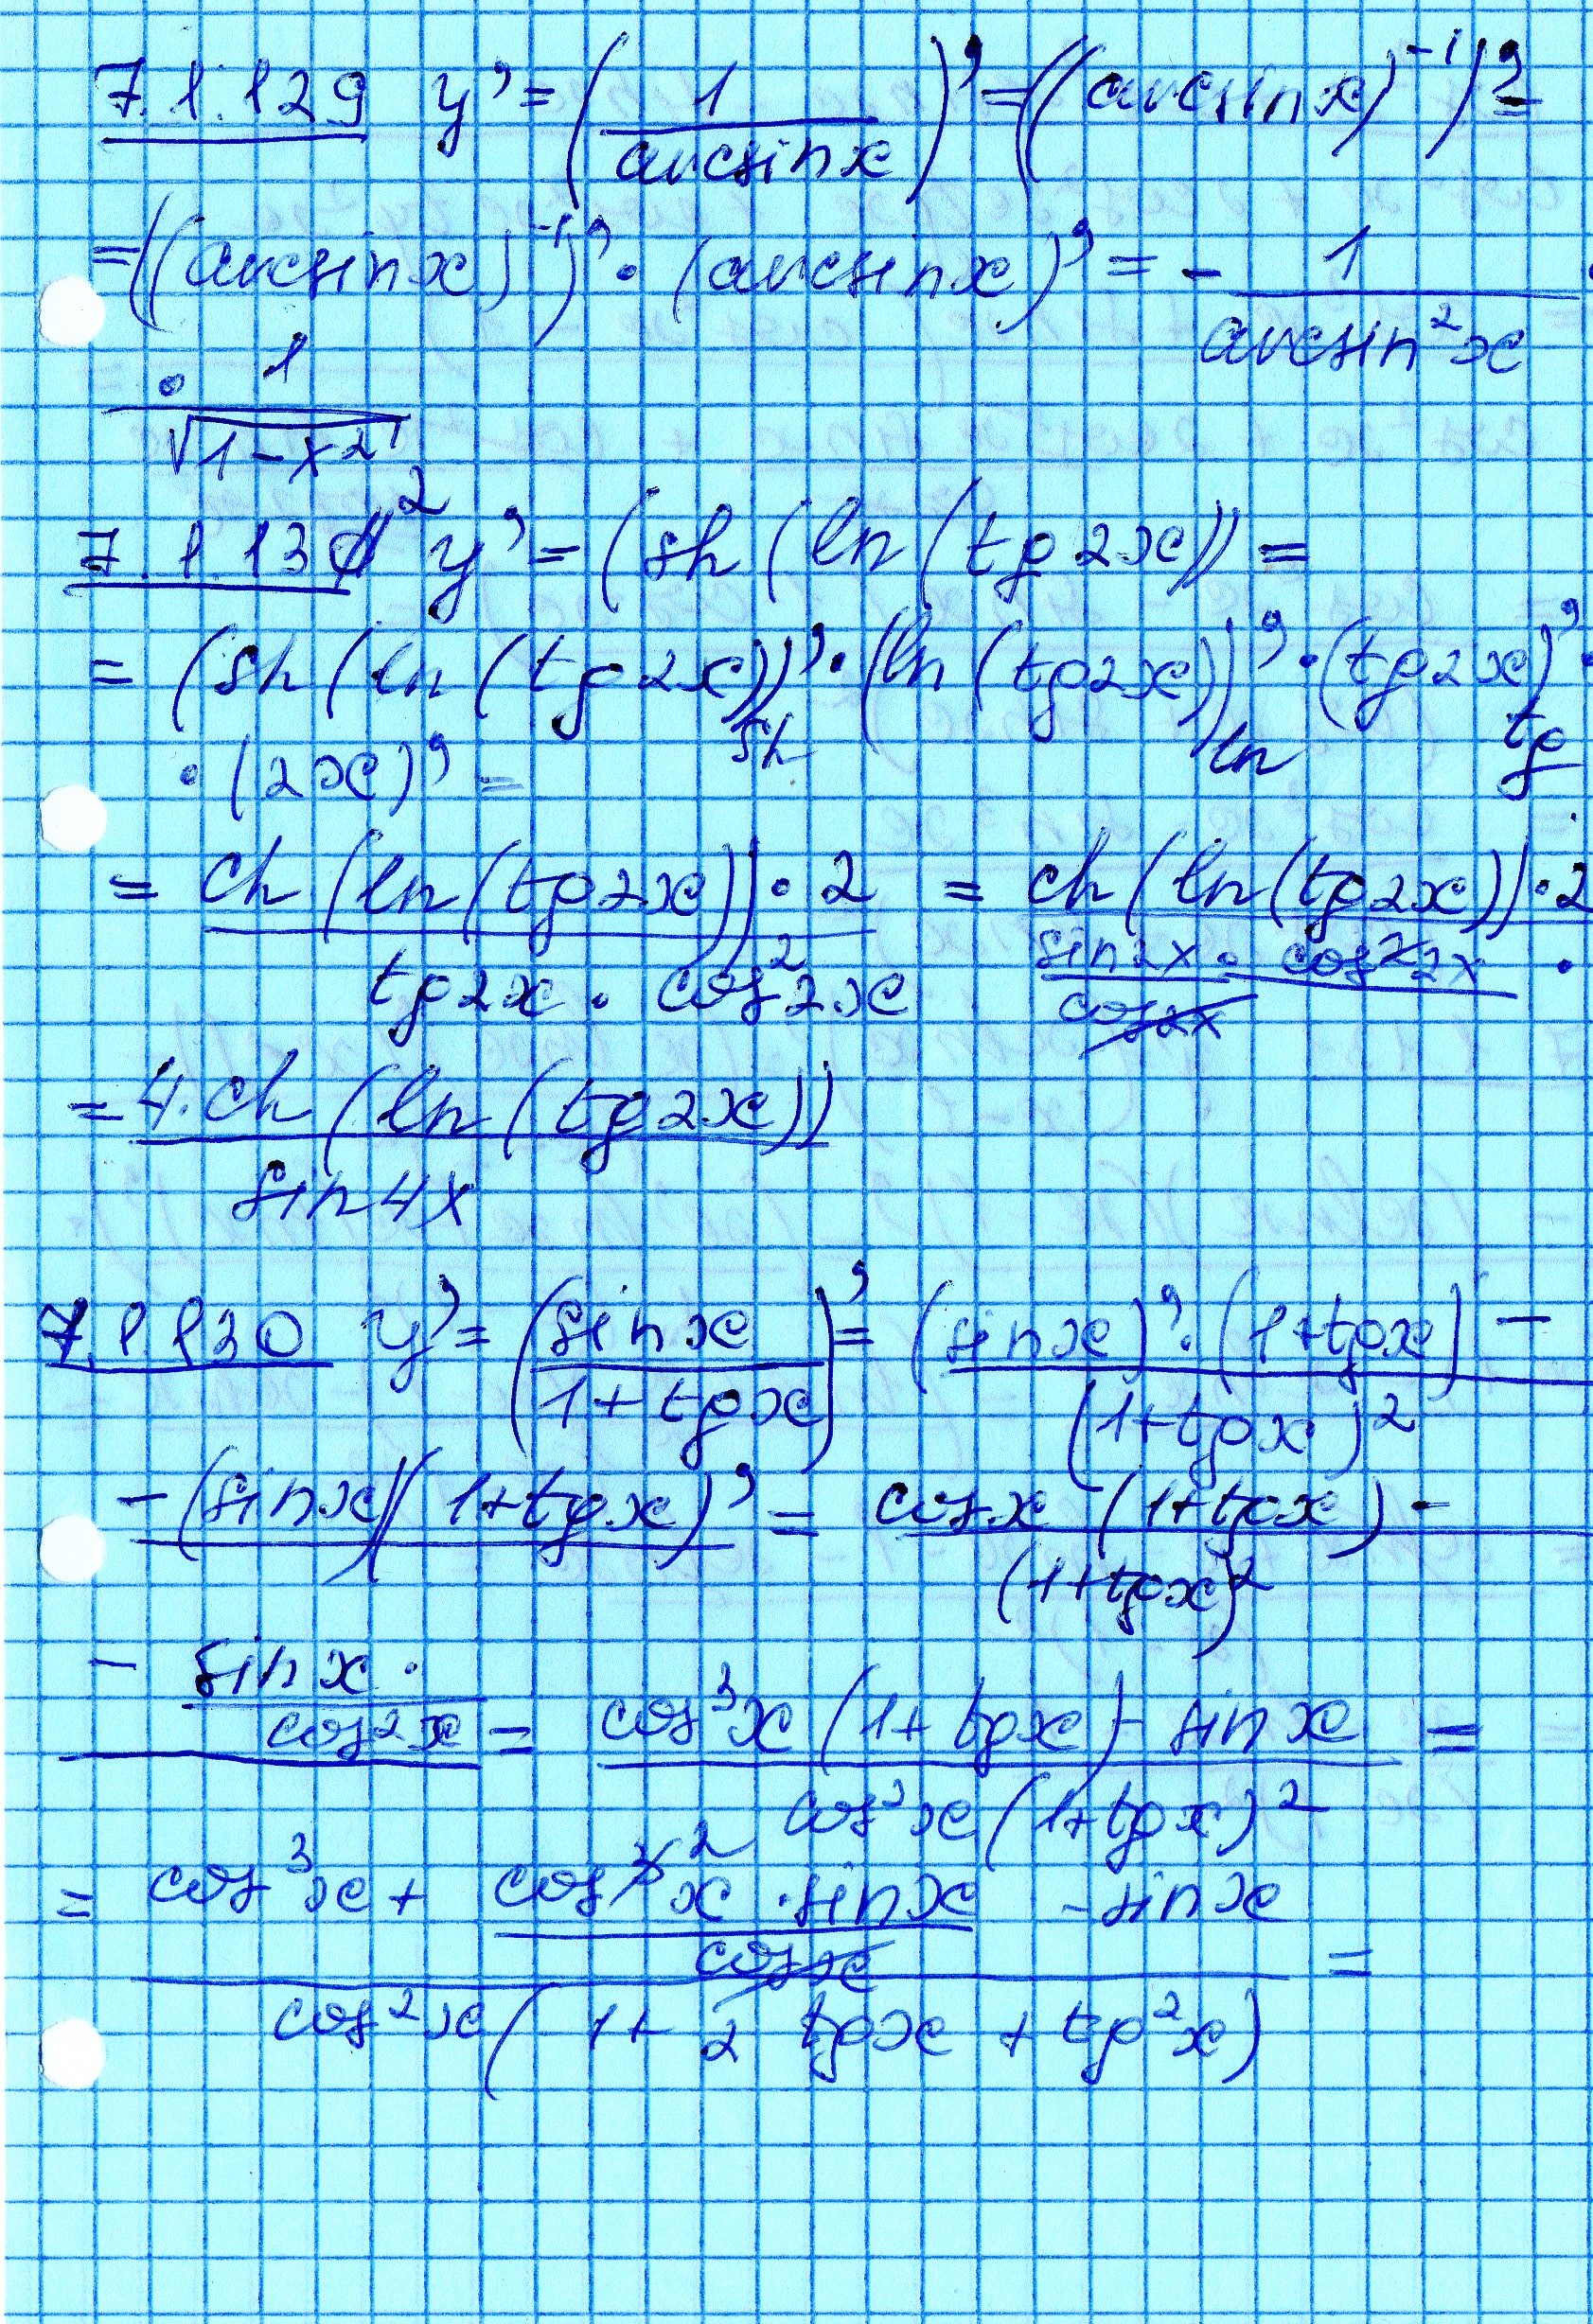 7.1.129 y' = (1/arcsin x)' = ((arcsin x)^-1)' =
= ((arcsin x)^-1)' · (arcsin x)' = - 1/arcsin²x ·
· 1/√(1-x²)
7.1.132 y' = (sh(ln(tg2x)) =
= (sh(ln(tg2x))'_sh · (ln(tg2x))'_ln · (tg2x)'_tg ·
· (2x)' =
= ch(ln(tg2x)) · 2 / tg2x · cos²2x = ch(ln(tg2x)) · 2 / sin2x/cos2x · cos²2x ·
= 4·ch(ln(tg2x)) / sin4x
7.1.130 y' = (sin x / 1+tgx)' = (sin x)' · (1+tgx) - / (1+tgx)²
-(sin x)(1+tgx)' = cos x (1+tgx) - / (1+tgx)²
- sin x · /cos²x = cos³x (1+tgx) - sin x / cos²x (1+tgx)² =
= cos³x + cos²x · sin x / cos x - sin x / cos²x (1 + 2 tgx + tg²x) =